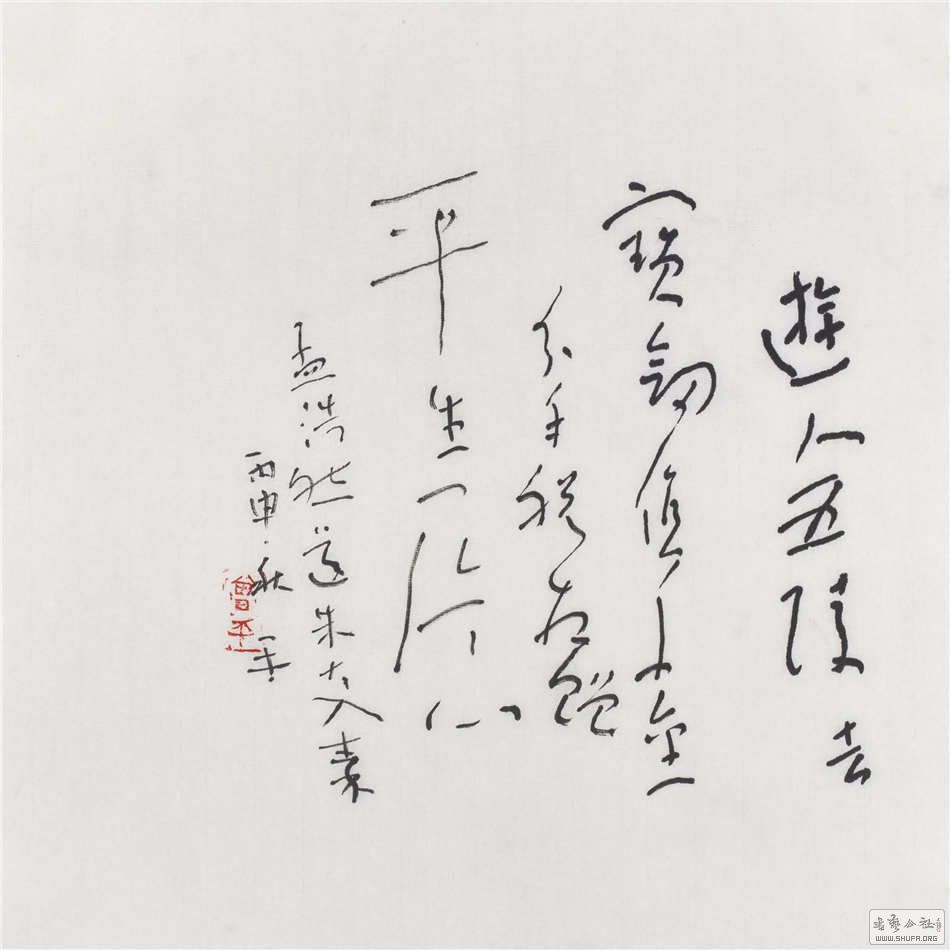 遊人五陵去
寶劒值千金
分手脱相贈
平生一片心
孟浩然送朱大入秦
丙申秋 一士
曾平
書藝公社
WWW.SHUFA.ORG